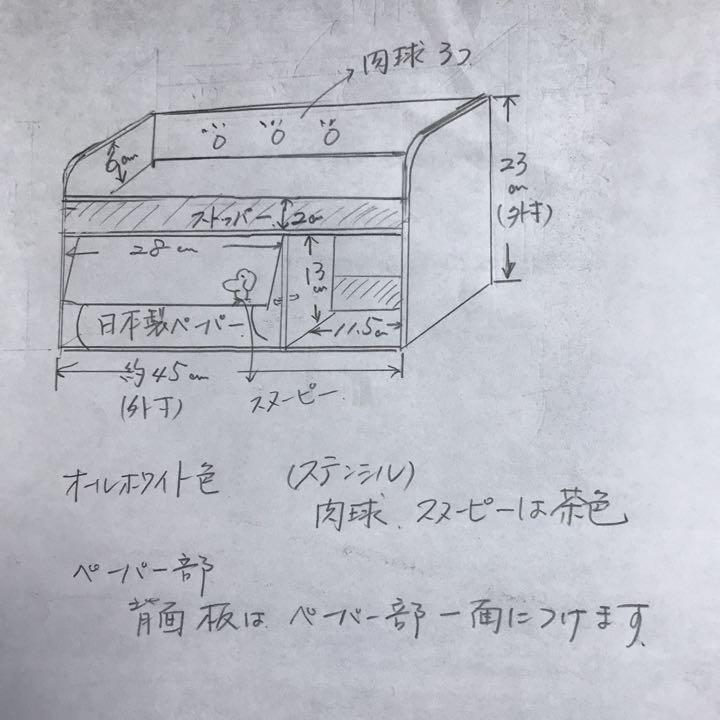 肉球 3つ
9cm
ストッパー 2cm
23
cm
(外寸)
28cm
13
cm
日本製ペーパー
11.5cm
約45cm
(外寸)
スヌーピー
オールホワイト色
(ステンシル)
肉球、スヌーピーは茶色
ペーパー部
背面板は ペーパー部一面につけます。